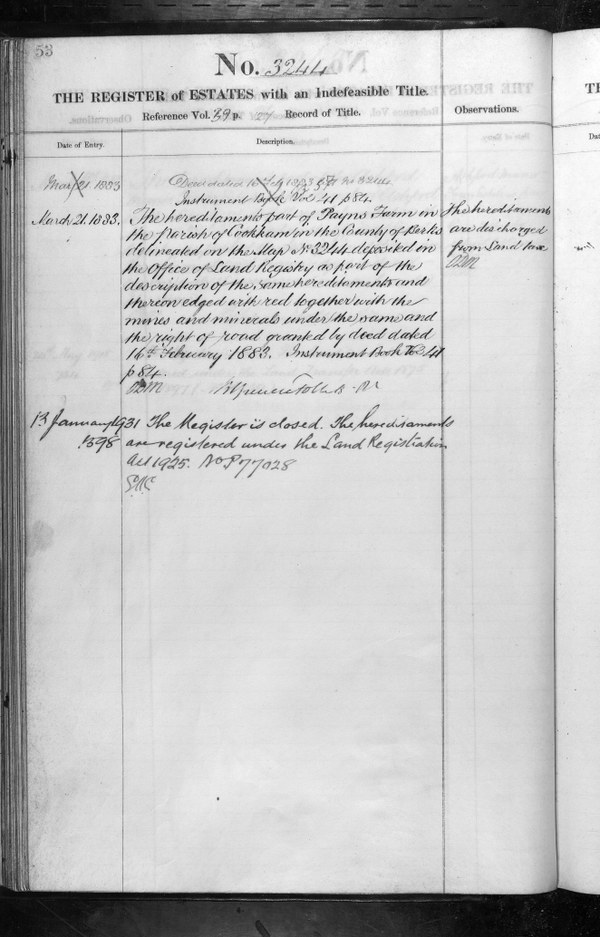 53
No. 3244
THE REGISTER of ESTATES with an Indefeasible Title.
Reference Vol. 39 p. Record of Title.
Observations.
Date of Entry.
Description.
Mar 21. 1883
Deed dated 16 Feby 1883 3244
Instrument Book Vol 41 p 84.
March 21. 1883.
The hereditaments part of Payns Farm in
the parish of Cookham in the County of Berks
delineated on the Map No 3244 deposited in
the Office of Land Registry as part of the
description of the same hereditaments and
thereon edged with red together with the
mines and minerals under the same and
the right of road granted by deed dated
16th February 1883. Instrument Book Vol 41
p 84.
The hereditaments
are discharged
from Land tax
13 January 1931
598
The Register is closed. The hereditaments
are registered under the Land Registration
Act 1925. No P77028